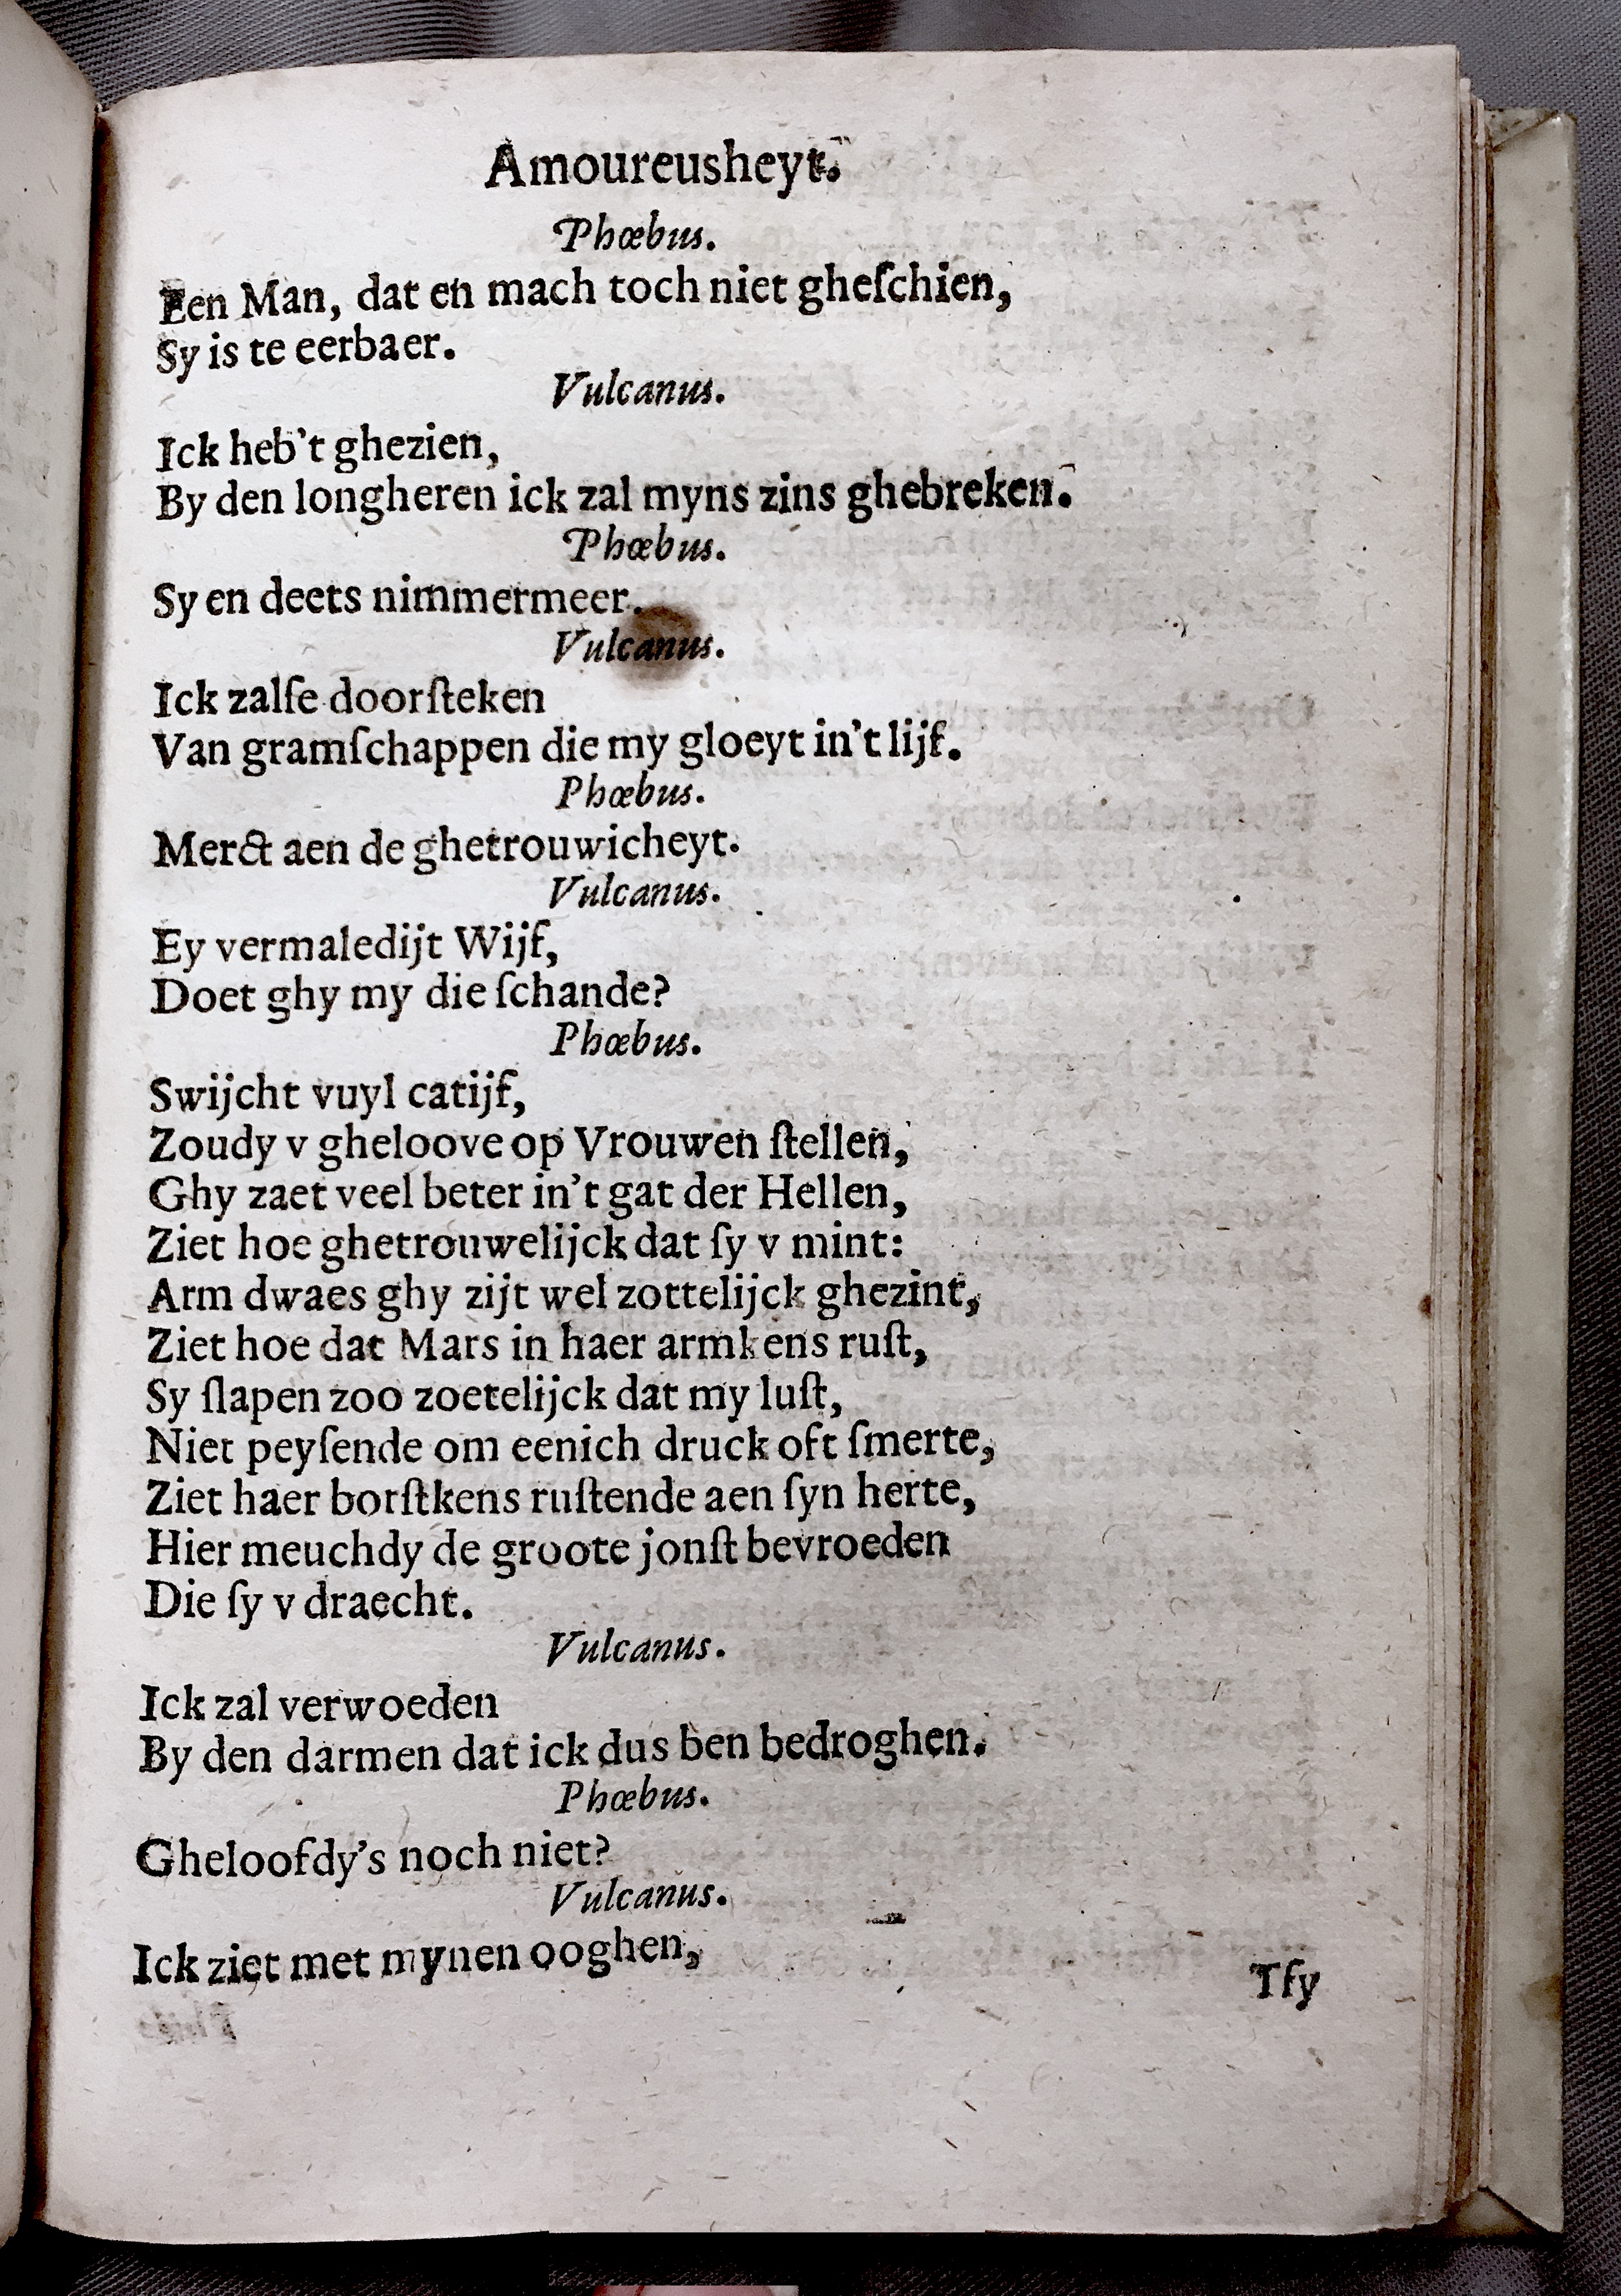 Amoureusheyt.
Phœbus.
Een Man, dat en mach toch niet gheſchien,
Sy is te eerbaer.
Vulcanus.
Ick heb't ghezien,
By den longheren ick zal myns zins ghebreken.
Phœbus.
Sy en deets nimmermeer.
Vulcanus.
Ick zalſe doorſteken
Van gramſchappen die my gloeyt in't lijf.
Phœbus.
Merct aen de ghetrouwicheyt.
Vulcanus.
Ey vermaledijt Wijf,
Doet ghy my die ſchande?
Phœbus.
Swijcht vuyl catijf,
Zoudy v gheloove op Vrouwen ſtellen,
Ghy zaet veel beter in't gat der Hellen,
Ziet hoe ghetrouwelijck dat ſy v mint:
Arm dwaes ghy zijt wel zottelijck ghezint,
Ziet hoe dat Mars in haer armkens ruſt,
Sy ſlapen zoo zoetelijck dat my luſt,
Niet peyſende om eenich druck oft ſmerte,
Ziet haer borſtkens ruſtende aen ſyn herte,
Hier meuchdy de groote jonſt bevroeden
Die ſy v draecht.
Vulcanus.
Ick zal verwoeden
By den darmen dat ick dus ben bedroghen.
Phœbus.
Gheloofdy's noch niet?
Vulcanus.
Ick ziet met mynen ooghen,
Tſy